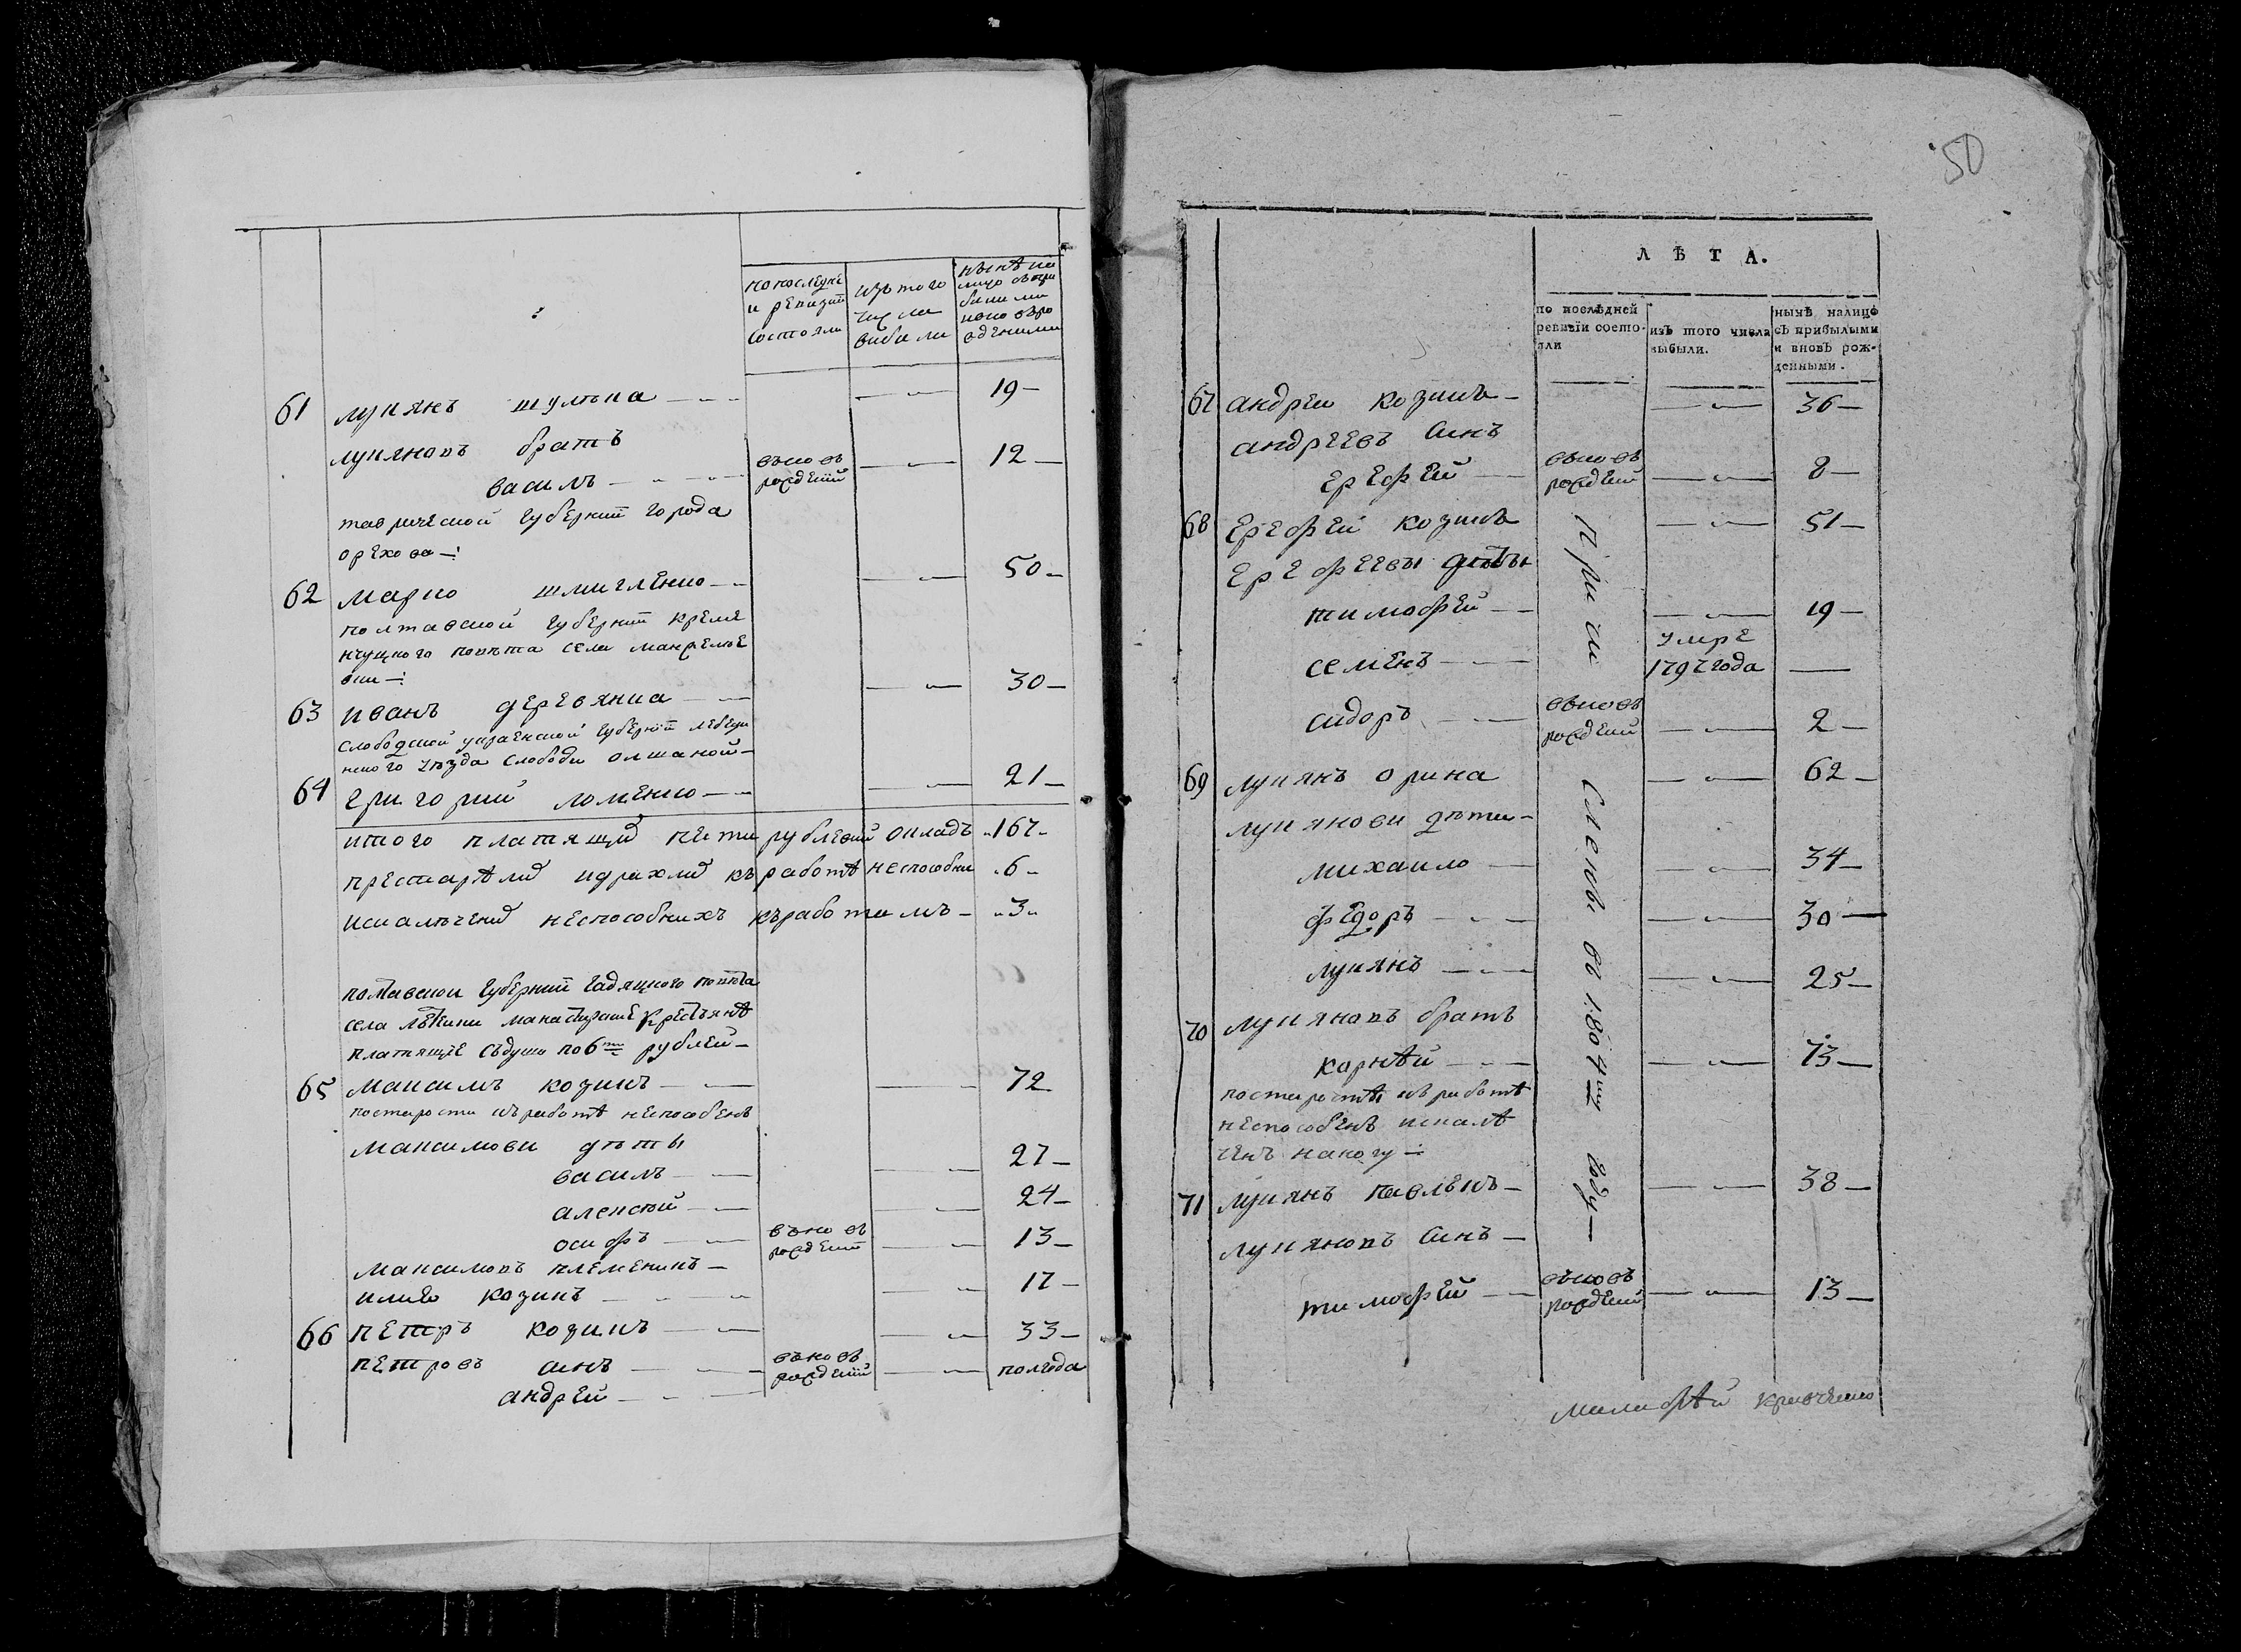 по последне
и ревизий
состояли
изъ того
числа
вибили
нынѣ на
лицо съ при
билими
и вновъ ро
жденими
61 лукянъ шулъга — 19 —
лукяновъ братъ
василь — вновъ рожденій — 12 —
таврической губерній города
орехова —
62 марко шмигленко — 50 —
полтавской губерній креме
нчуцкого повѣта села манжелѣе
вки —
63 иванъ деревянка — 30 —
слободской украенской губерній лебеди
нского уѣзда слободи олшаной —
64 григорий ломенко — 21 —
итого платящихъ пети рублевий окладъ 167
престарѣлихъ идряхлихъ къ работѣ неспособни 6
искалѣченихъ неспособнихъ къ работимъ — 3
полтавской губерній гадяцкого повѣта
села лютенки манастирские крестъянѣ
платящіе съдуши по 6ти рублей —
65 максимъ козинъ — 72
постарости къ работѣ неспособенъ
максимови дѣты
василь — 27 —
алексѣй — 24 —
осифъ — вновъ рожденій — 13 —
максимовъ племеникъ —
илько козинъ — 17 —
66 петръ козинъ — 33 —
петровъ синъ — вновъ рожденій — полгода
андрей —
50
ЛѢТА.
по послѣдней
ревизіи состо-
яли
изъ того числа
выбыли.
нынѣ налицо
съ прибылыми
и вновь рож-
денными.
67 андрей козинъ — 36 —
андреевъ синъ
ерефей — вновъ рожденій — 8 —
68 ерефей козинъ — 51 —
ерефеевы дѣты
тимофей — 19 —
семенъ — умре 1797 года —
сидоръ — вновъ рожденій — 2 —
69 лукянъ орина — 62 —
лукянови дѣти —
михаило — 34 —
федоръ — 30 —
лукянъ — 25 —
70 лукяновъ братъ
корнѣй — 73 —
постаростѣ къ работѣ
неспособенъ искалѣ
ченъ на ногу —
71 лукянъ павликъ — 38 —
лукяновъ синъ —
тимофей — вновъ рожденій — 13 —
Причисленъ въ 1804му году —
малафѣй кривченко